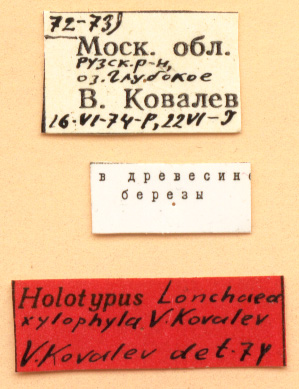 72-73)
Моск. обл.
Рузск. р-н,
оз. Глубокое
В. Ковалев
16-VI-74-P, 22VI-
в древесине
березы
Holotypus Lonchaea
xylophyla V. Kovalev
V. Kovalev det. 74